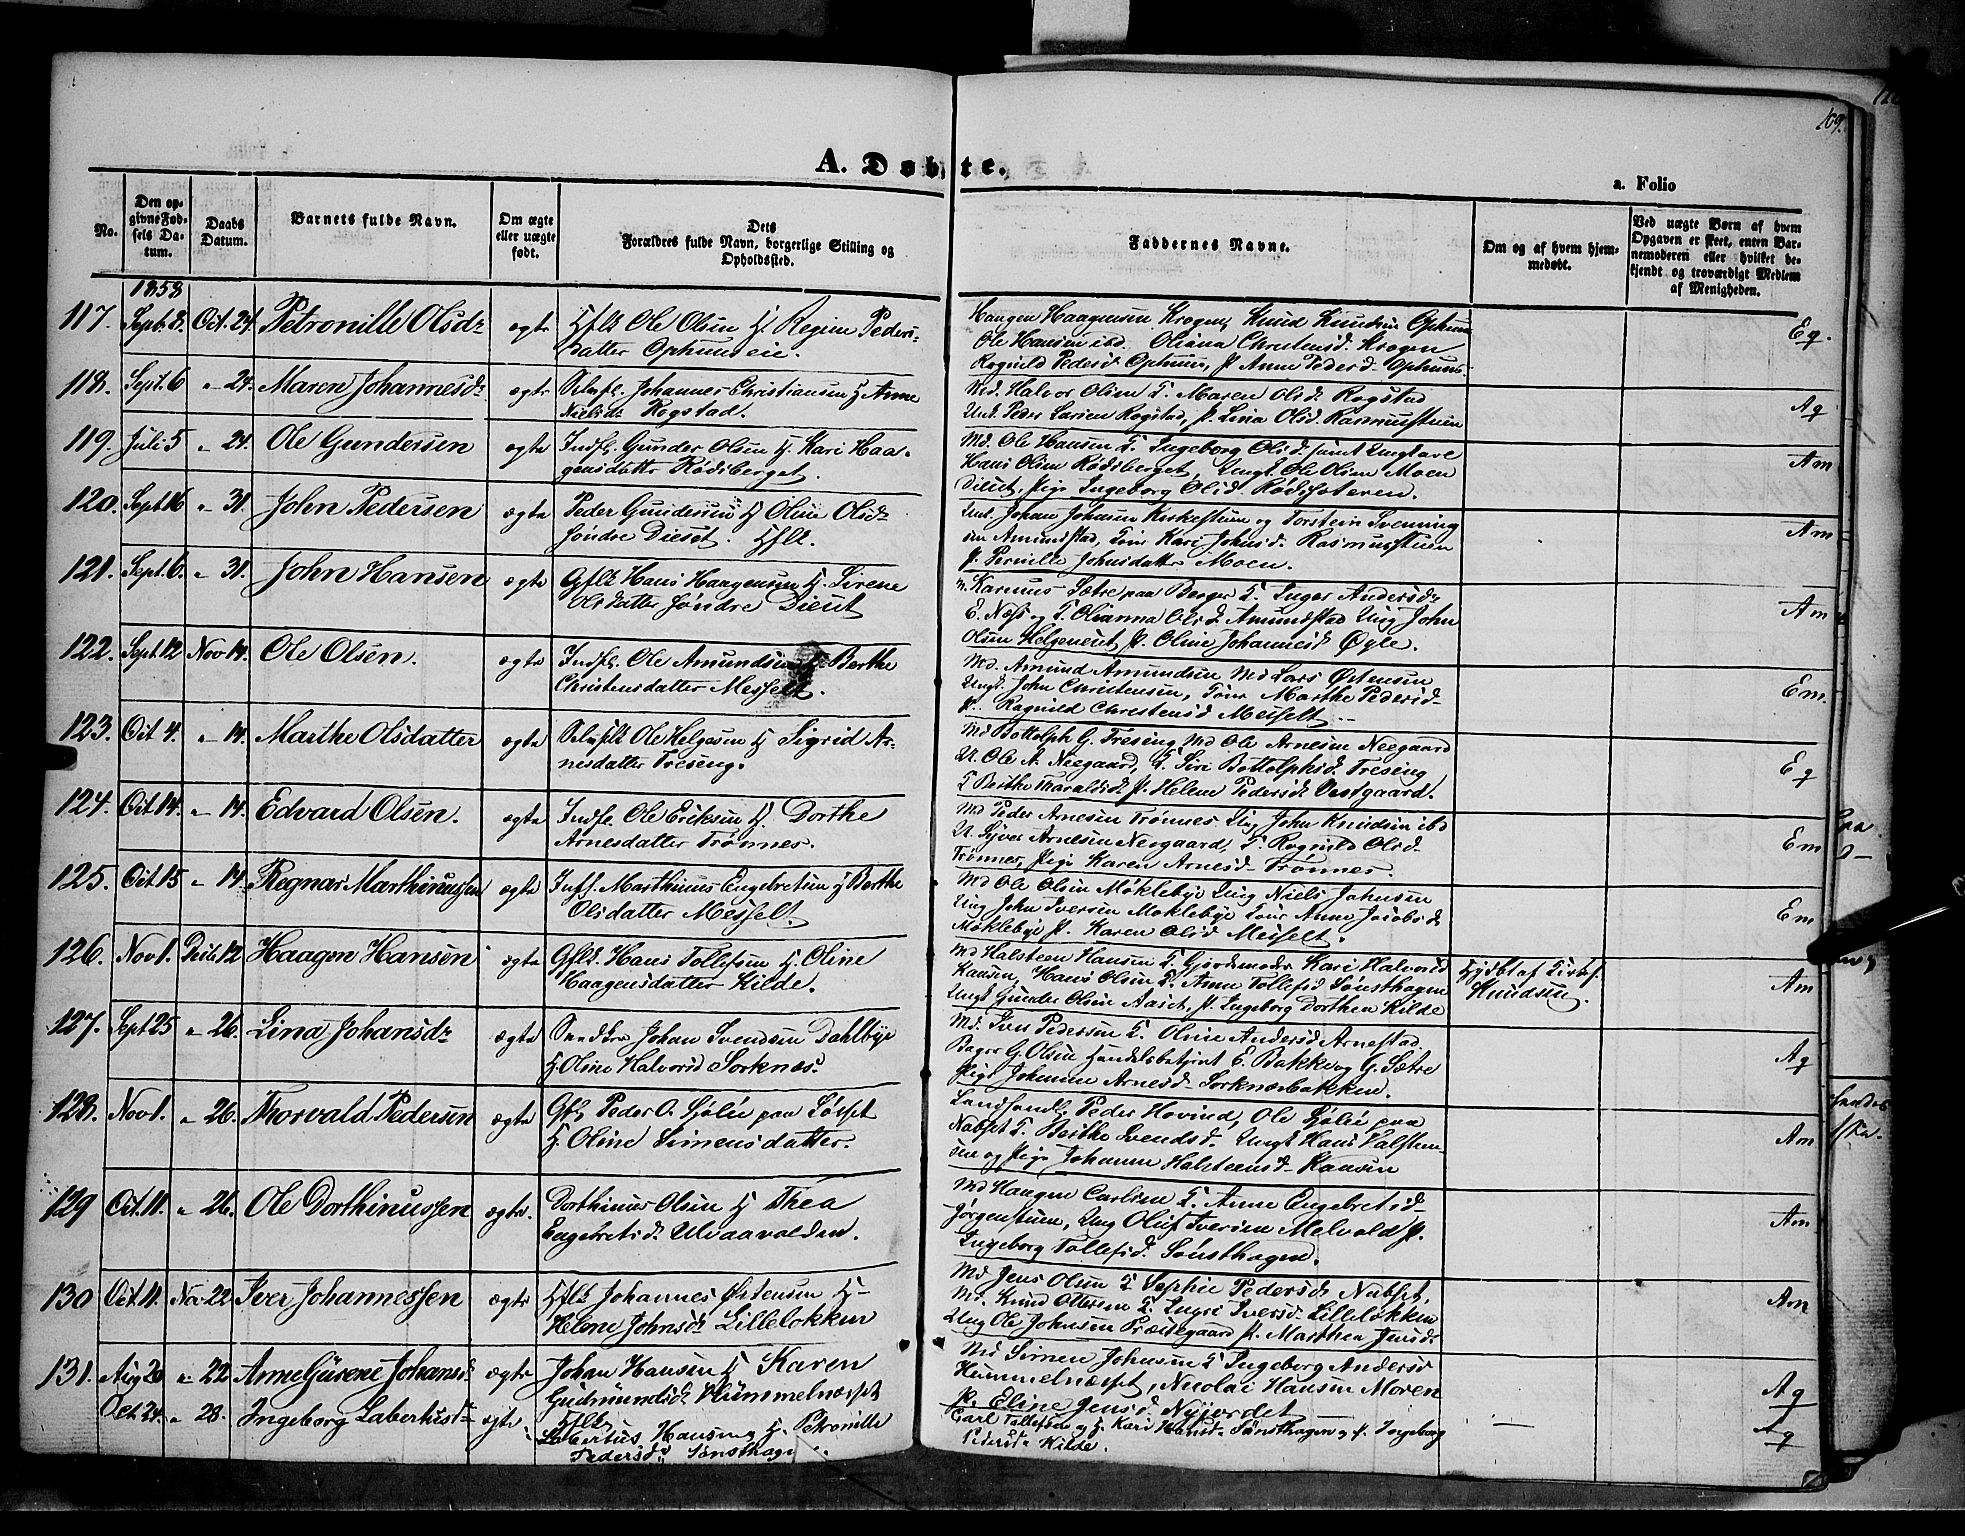 109.
A. Døbte.
a. Folio
No.
Den opgivne Fødsels Datum.
Daabs Datum.
Barnets fulde Navn.
Om ægte eller uægte født.
Dets Forældres fulde Navn, borgerlige Stilling og Opholdssted.
Faddernes Navne.
Om og af hvem hjemmedøbt.
Ved uægte Børn af hvem Opgaven er skeet, enten Barnemoderen eller hvilket bekjendt og troværdigt Medlem af Menigheden.
1858
117. Sept. 8. Oct. 24. Petronille Olsdr ægte Hflk Ole Olsen H. Regine Peders-
datter Ophuuseie.
Haagen Haagensen Krogen, Knud Knudsen Ophuus
Ole Hansen ibd. Oliana Christensd. Krogen
Ragnild Pedersd Ophuus, P. Anne Pedersd Ophuus
Eq.
118. Sept. 6 " 24. Maren Johannesdr ægte Johannes Christiansen H Anne
Nielsdr Rogstad.
Md. Halvor Olsen K. Maren Olsd. Rogstad
Unk. Peder Larsen Rogstad, P. Lina Olsd. Rasmusstuen
Aq
119. Juli 5 " 24. Ole Gundersen ægte Indf. Gunder Olsen H. Kari Haa-
gensdatter Rødsberget.
Md. Ole Hansen K. Ingeborg Olsd. samt Ungkare
Hans Olsen Rødsberget, Ungk. Ole Olsen Moen
Diset, Pige Ingeborg Olsd. Rødssæteren.
Am
120. Sept 16 " 31. John Pedersen ægte Peder Gundersen H Oline Olsdr
Søndre Dieset. Hflk.
Unk. Johan Johnsen Kirkestuen og Torstein Svenning
sen Amundstad, Kone Kari Johnsd. Rasmusstuen
P. Pernille Johnsdatter Moen.
Am
121. Sept. 6. " 31. John Hansen ægte Gflk Hans Haagensen H. Sirene
Olsdatter Søndre Dieset
Rasmus Sætre paa Berger K. Inger Andersdr
E. Næss og K. Olianna Olsd. Amundstad Ung John
Olsen Helgeneset, P. Oline Johannesd Øgle.
Am
122. Sept. 12 Nov. 14. Ole Olsen. ægte Indf. Ole Amundsen H Berthe
Christensdatter Messelt.
Md. Amund Amundsen Md Lars Østensen
Ungk. John Christensen, Kone Marthe Pedersd-
P. Ragnild Christensd Messelt
Em.
123. Oct 4. " 14. Marthe Olsdatter ægte Ole Helgesen H Sigrid Ar-
nesdatter Treseng.
Md Bottolph G. Treseng, Md Ole Arnesen Neegaard
U. Ole A. Neegaard, K. Siri Bottolphsd. Treseng
K Berthe Tharaldsd P. Helene Pedersd. Vestgaard.
Eq
124. Oct 14. " 14. Edvard Olsen. ægte Indf. Ole Eriksen H. Dorthe
Arnesdatter Trønnes.
Md Peder Arnesen Trønnes. Ung John Knudsen ibd
U. Syver Arnesen Neegaard, K Ragnild Olsd-
Trønnes, Pige Karen Arnesd- Trønnes.
Em
125. Oct 15 " 14. Regnar Marthinussen ægte Inff. Marthinus Engebretsen H Berthe
Olsdatter Messelt.
Md Ole Olsen Møklebye Ung Niels Johnsen
Ung John Iversen Møklebye Kone Anne Jacobsd
Møklebye P. Karen Olsd Messelt.
Em
126. Nov 1. Decbr 12 Haagen Hansen ægte Gflk. Hans Tollefsen H. Oline
Haagensdatter Kilde.
Md Halsteen Hansen K. Gjordemoder Kari Halvorsd
Kaasen, Hans Olsen K. Anne Tollefsd Sønsthagen
Ungk Gunder Olsen Aaset, P. Ingeborg Dorthea Kilde
Hjdbt af Kirks.
Knudsen.
Am
127. Sept 25 " 26. Lina Johansdr ægte Johan Svendsen Dahlbye
H. Oline Halvorsd Sorknæs.
Md. Iver Pedersen K. Oline Andersd Arnestad.
Bager G. Olsen Handelsbetjent E. Bakke og G. Sætre
Pige Johanne Arnesd- Sorknæsbakken.
Aq
128. Nov 1. " 26. Thorvald Pedersen ægte Gfl Peder O. Sjølie paa Løsset
H. Oline Simensdatter.
Landhandl. Peder Hovind, Ole Sjølie paa
Nabset K. Berthe Svendsd. Ungk Hans Halsteen-
sen og Pige Johanne Halsteensd- Kaasen
Am
129 Oct. 11. " 26. Ole Dorthinussen ægte. Dorthinus Olsen H Thea
Engebretsd. Ulvaavolden.
Md Haagen Carlsen K. Anne Engebretsd-
Jørgenstuen, Ung Oluf Iversen Melvold P.
Ingeborg Tollefsd. Sønsthagen.
Am
130 Oct 11. Nov 22 Iver Johannessen ægte Hflk Johannes Østensen H-
Helene Johnsdr Lilleløkken
Md Jens Olsen K Sophie Pedersd. Nabset,
Md. Knud Ottersen K. Ingri Iversd. Lilleløkken
Ung Ole Johnsen Præstegaard P. Marthea Jensd.
Am
131. Aug 20 " 22 Anne Gurene Johansd. ægte Johan Hansen H Karen
Gudmundsdr Hummelnæsset
Md Simen Johnsen K Ingeborg Andersd
Hummelnæsset, Nicolai Hansen Moren
P. Eline Jensd. Nyjordet
Aq
Oct 24. " 28. Ingeborg Labertusdr ægte Hflk
Labertus Hansen H. Petronille
Pedersd. Sønsthagen
Carl Tollefsen og H. Kari Hansd. Sønsthagen og P. Ingeborg
Pedersd. Kilde.
—
Aq